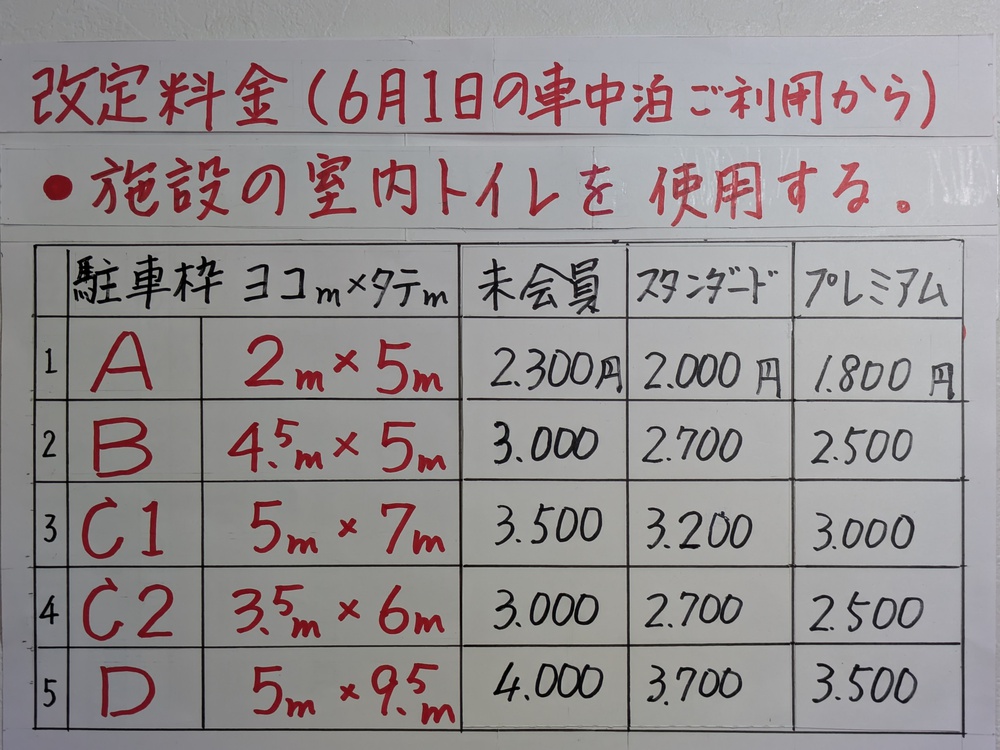 改定料金(6月1日の車中泊ご利用から)
●施設の室内トイレを使用する。
駐車枠 ヨコm×タテm 未会員 スタンダード プレミアム
1 A 2m×5m 2.300円 2.000円 1.800円
2 B 4.5m×5m 3.000 2.700 2.500
3 C1 5m×7m 3.500 3.200 3.000
4 C2 3.5m×6m 3.000 2.700 2.500
5 D 5m×9.5m 4.000 3.700 3.500